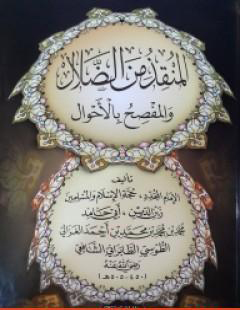 المنقذ من الضلال
والمفصح بالأحوال
تأليف
الإمام المجدد، حجة الإسلام والمسلمين
زين الدين، أبي حامد
محمد بن محمد بن محمد بن أحمد الغزالي
الطوسي الطابراني الشافعي
رضي الله عنه